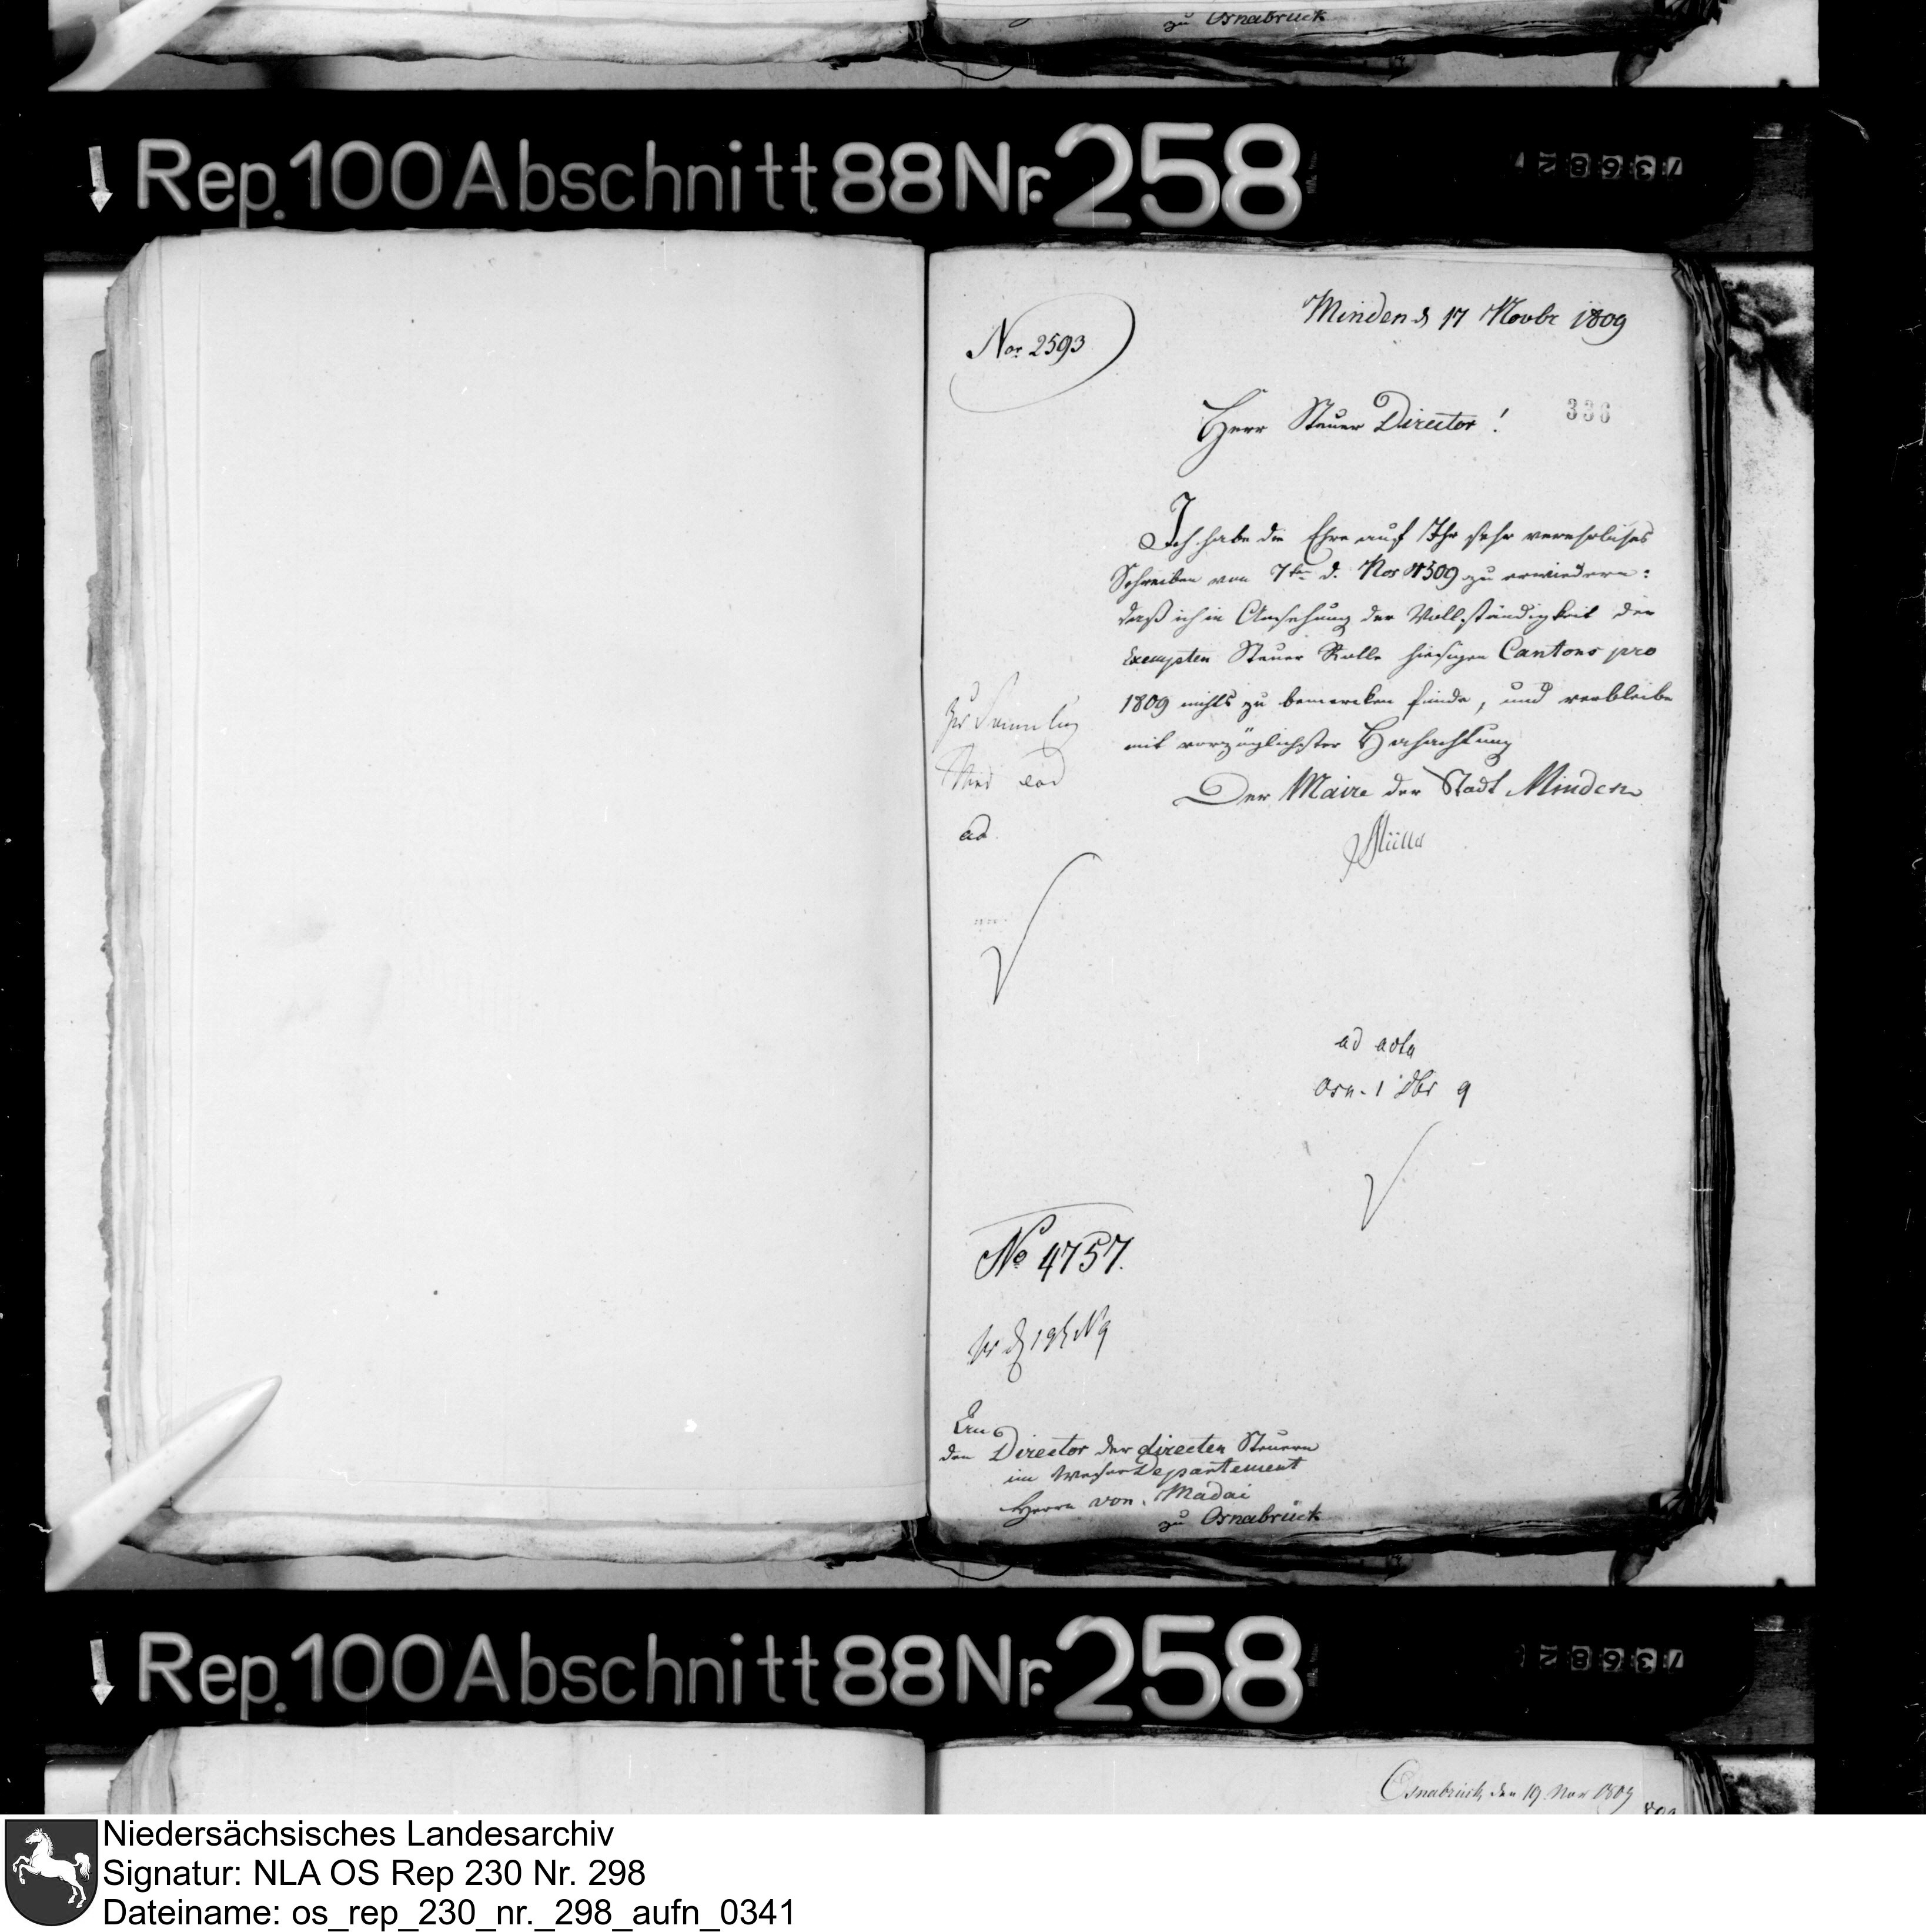 zu Osnabrück
Rep. 100 Abschnitt 88 Nr. 258
Minden d 17 Novbr 1809
Nor. 2593
336
Herr Steuer Director!
Ich habe die Ehre auf Ihr sehr verehrliches
Schreiben vom 7ten d. Nor 4509 zu erwiedern:
daß ich in Ansehung der Vollständigkeit der
Exempten Steuer Rolle hiesigen Cantons pro
1809 nichts zu bemercken finde, und verbleibe
mit vorzüglichster Hochachtung
Der Maire der Stadt Minden
Müller
Zur Sammlung
ad
ad acta
Osn. 1 Dbr 9
No 4757.
den Director der directen Steuern
im Weser Departement
Herrn von Madai
zu Osnabrück
Rep. 100 Abschnitt 88 Nr. 258
Osnabrück, den 19 Nov 1809
Niedersächsisches Landesarchiv
Signatur: NLA OS Rep 230 Nr. 298
Dateiname: os_rep_230_nr._298_aufn_0341